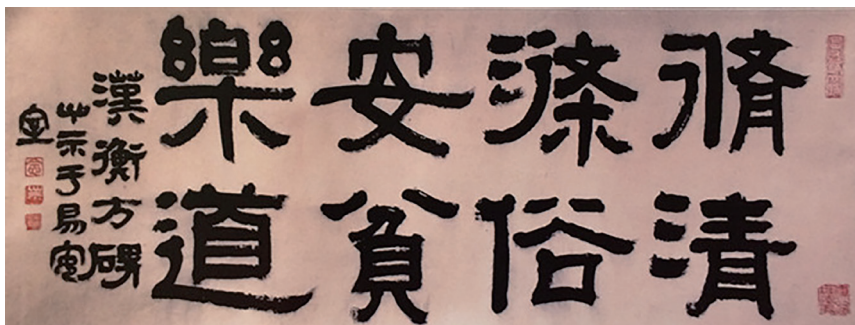 脩清
滌俗
安貧
樂道
漢衡方碑
于易安
室